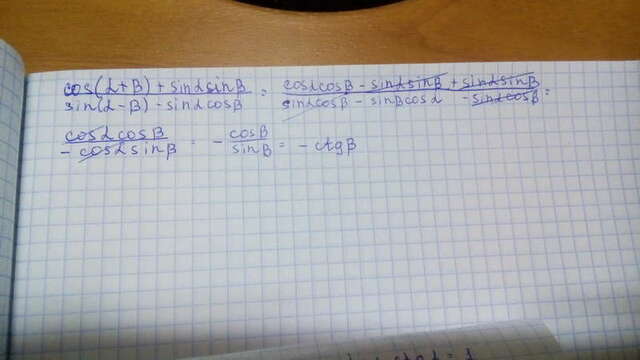 cos(α+β)+sinαsinβ / sin(α-β)-sinαcosβ = cosαcosβ - sinαsinβ + sinαsinβ / sinαcosβ - sinβcosα - sinαcosβ =
cosαcosβ / -cosαsinβ = - cosβ / sinβ = - ctgβ